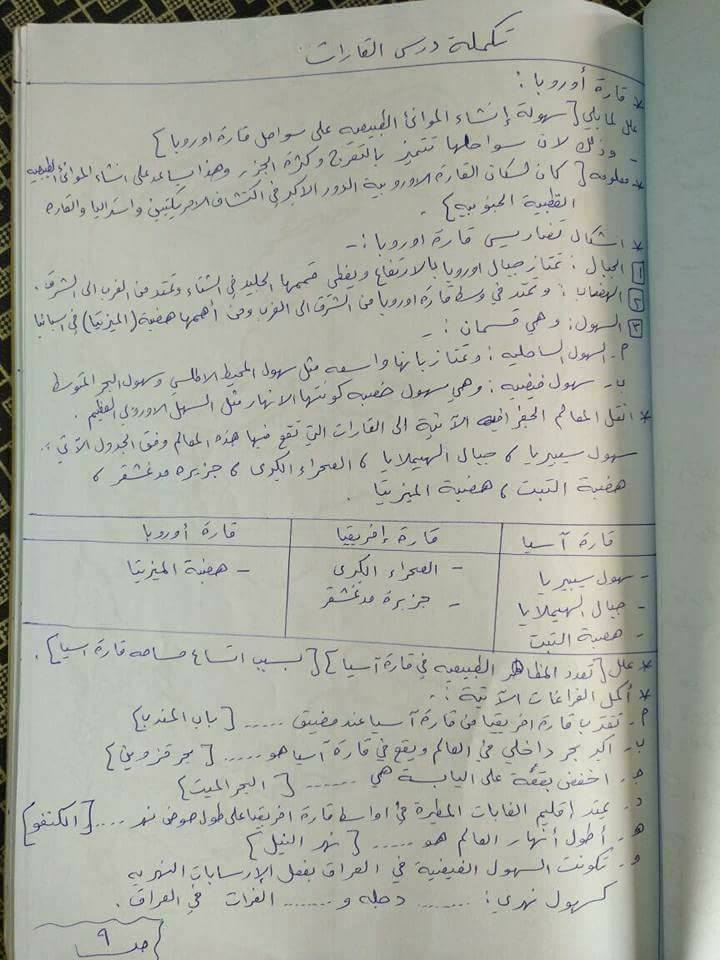 تكملة درس القارات
* قارة أوروبا :
علل لمايلي [ سهولة إنشاء الموانئ الطبيعيه على سواحل قارة اوروبا ]
- وذلك لان سواحلها تتميز بالتعرج وكثرة الجزر وهذا يساعد على انشاء الموانئ الطبيعيه
* معلومه [ كان لسكان القارة الاوروبية الدور الاكبر في اكتشاف الامريكيتين واستراليا والقاره
القطبية الجنوبيه ] .
* اشكال تضاريس قارة اوروبا : -
1 الجبال : تمتاز جبال اوروبا بالارتفاع ويغطي قممها الجليد في الشتاء وتمتد من الغرب الى الشرق .
2 الهضاب : وتمتد في وسط قارة اوروبا من الشرق الى الغرب ومن أهمها هضبة (الميزيتا) في اسبانيا
3 السهول : وهي قسمان : -
م- السهول الساحليه : وتمتاز بانها واسعه مثل سهول المحيط الاطلسي وسهول البحر المتوسط
ب- سهول فيضيه : وهي سهول خصبه كونتها الانهار مثل السهل الاوروبي العظيم .
* انقل المعالم الجغرافيه الآتية الى القارات التي تقع فيها هذه المعالم وفق الجدول الآتي :
سهول سيبيريا ، جبال الهيملايا ، الصحراء الكبرى ، جزيرة مدغشقر ،
هضبة التبت ، هضبة الميزيتا .
قارة آسيا | قارة إفريقيا | قارة أوروبا
- سهول سيبيريا | - الصحراء الكبرى | - هضبة الميزيتا
- جبال الهيملايا | - جزيرة مدغشقر
- هضبة التبت
* علل [ تعدد المظاهر الطبيعيه في قارة آسيا ] [ بسبب اتساع مساحه قارة اسيا ] .
* أكمل الفراغات الآتية : -
م- تقترب قارة افريقيا من قارة آسيا عند مضيق ..... [ باب المندب ]
ب- اكبر بحر داخلي في العالم ويقع في قارة آسيا هو ..... [ بحر قزوين ]
ج- اخفض بقعة على اليابسة هي ....... [ البحر الميت ]
د- يمتد إقليم الغابات المطيرة في أواسط قارة افريقيا على طول حوض نهر .... [ الكنغو ]
هـ- أطول أنهار العالم هو ..... [ نهر النيل ]
و- تكونت السهول الفيضية في العراق بفعل الإرسابات النهريه
كسهول نهري : ....... دجله و ....... الفرات في العراق .
صـ ٩